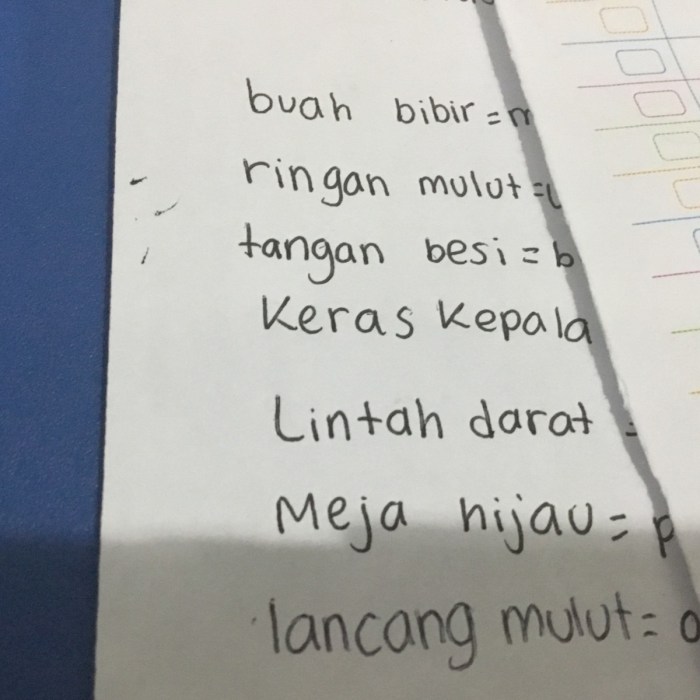 buah bibir = m
ringan mulut =
tangan besi = b
Keras Kepala
Lintah darat =
Meja hijau = p
lancang mulut =